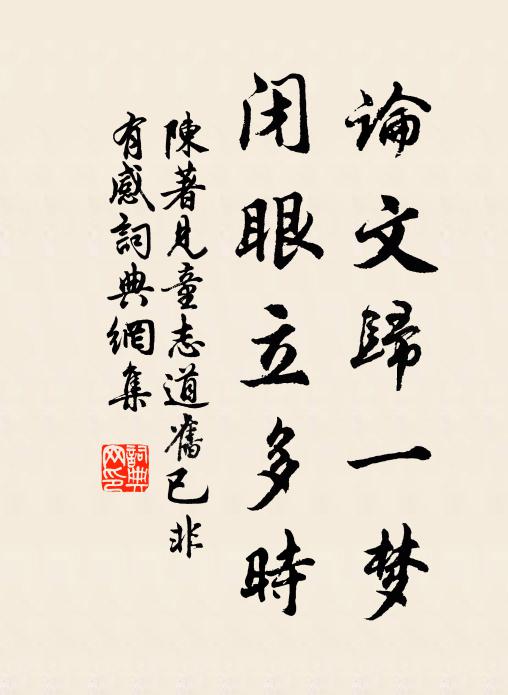 論文歸一梦
闭眼立多時
陳著見童志道舊已非
有感詞典網集
詞典
网印